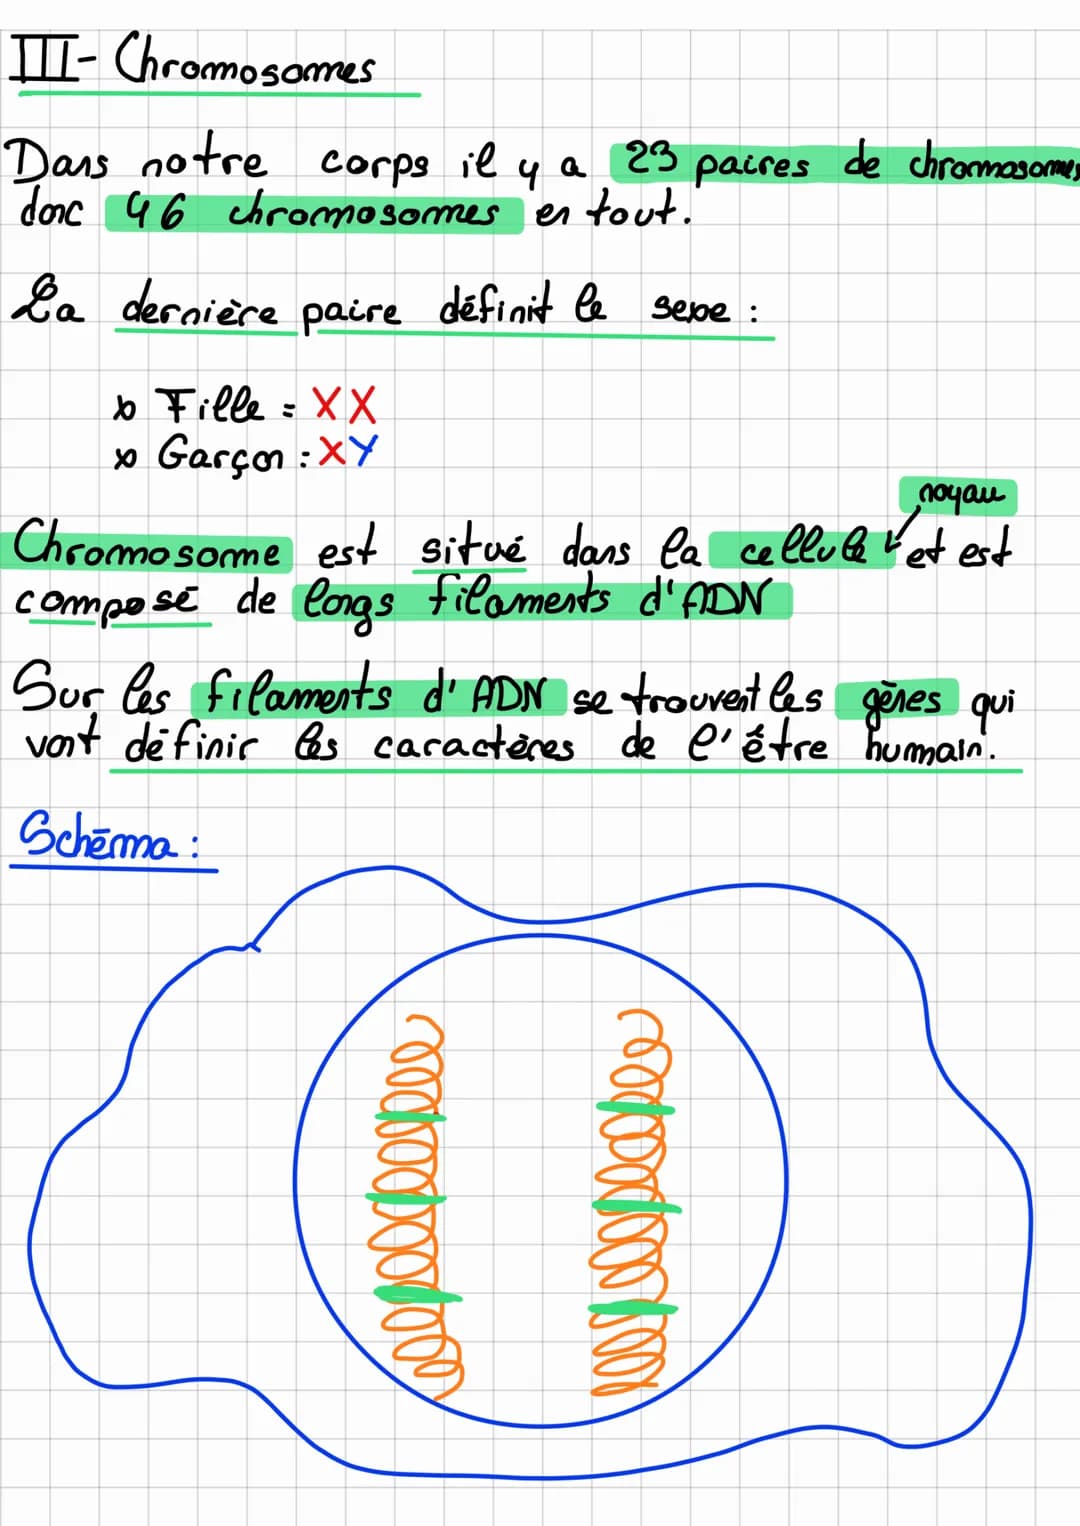 III- Chromosomes
Dans notre corps il y a 23 paires de chromosomes
donc 46 chromosomes en tout.
La dernière paire définit le sexe :
x Fille = XX
x Garçon : XY
noyau
Chromosome est situé dans la cellule et est
composé de longs filaments d'ADN
Sur les filaments d'ADN se trouvent les gènes qui
vont définir les caractères de l'être humain.
Schéma :